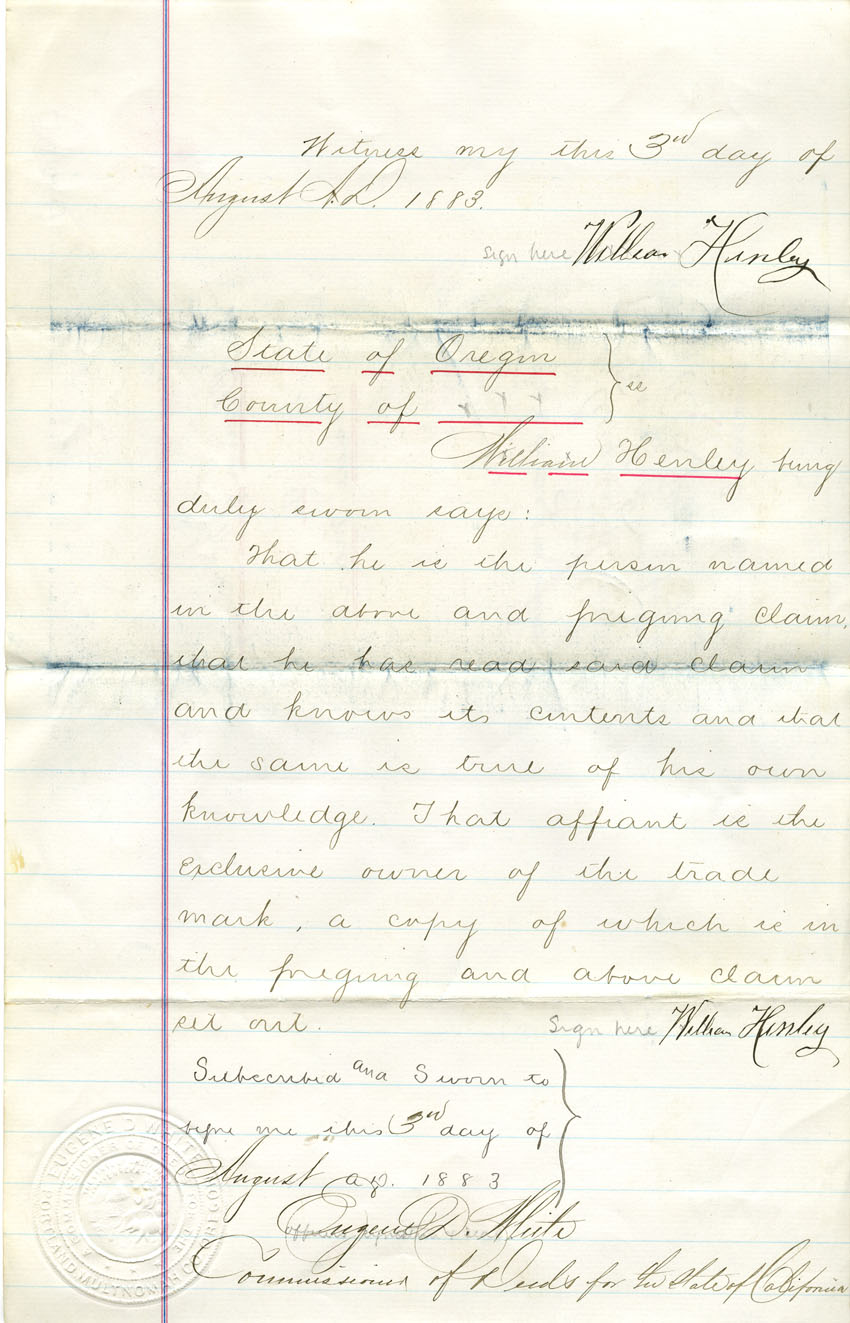 Witness my this 3rd day of
August A.D. 1883.
sign here William Henley
State of Oregon
County of x x x } ss
William Henley being
duly sworn says:
That he is the person named
in the above and foregoing claim,
that he has read said claim
and knows its contents and that
the same is true of his own
knowledge. That affiant is the
exclusive owner of the trade
mark, a copy of which is in
the foregoing and above claim
set out.
Sign here William Henley
Subscribed and Sworn to
before me this 3rd day of
August a.d. 1883
Eugene D. White
Commissioner of Deeds for the State of California
EUGENE D. WHITE
COMMISSIONER OF DEEDS
PORTLAND, MULTNOMAH CO. OREGON